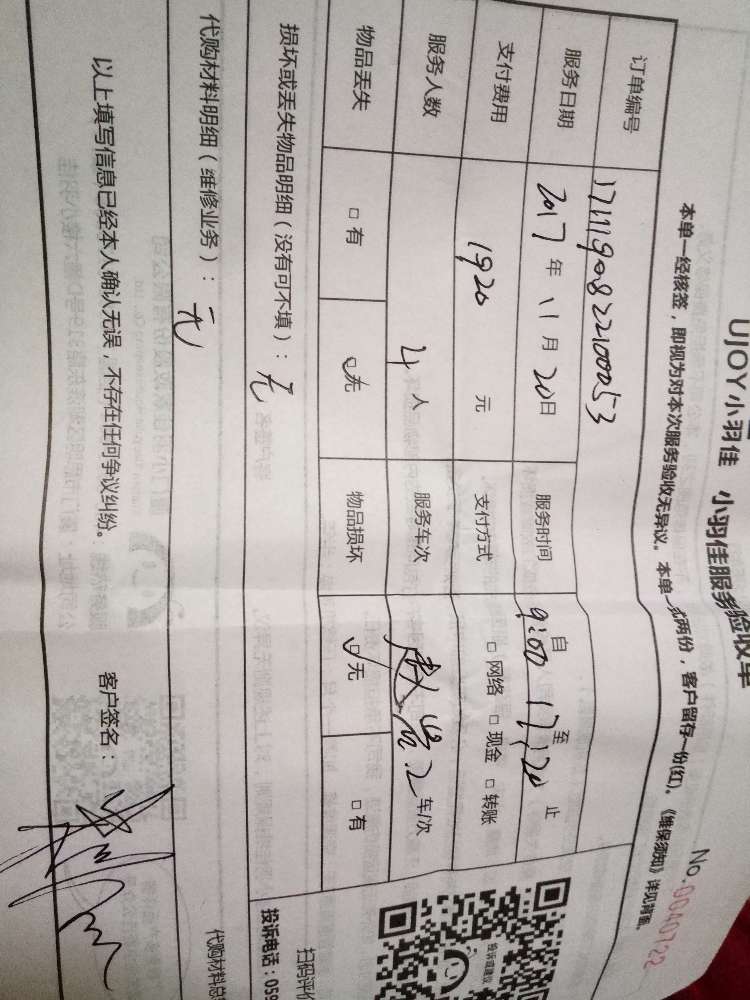 UJOY小羽佳 小羽佳服务验收单
No.00407122
本单一经核签，即视为对本次服务验收无异议。本单一式两份，客户留存一份(红)。《维保须知》详见背面。
订单编号 171119082210053
服务日期 2017 年 11 月 20 日 服务时间 自 9:00 至 17:20 止
支付费用 1920 元 支付方式 □网络 □现金 □转账
服务人数 4 人 服务车次 2 车/次
物品丢失 □有 □无 物品损坏 □无 □有
损坏或丢失物品明细（没有可不填）：无
代购材料明细（维修业务）：无
代购材料总
以上填写信息已经本人确认无误，不存在任何争议纠纷。 客户签名：
投诉或建议
扫码评价
投诉电话：059